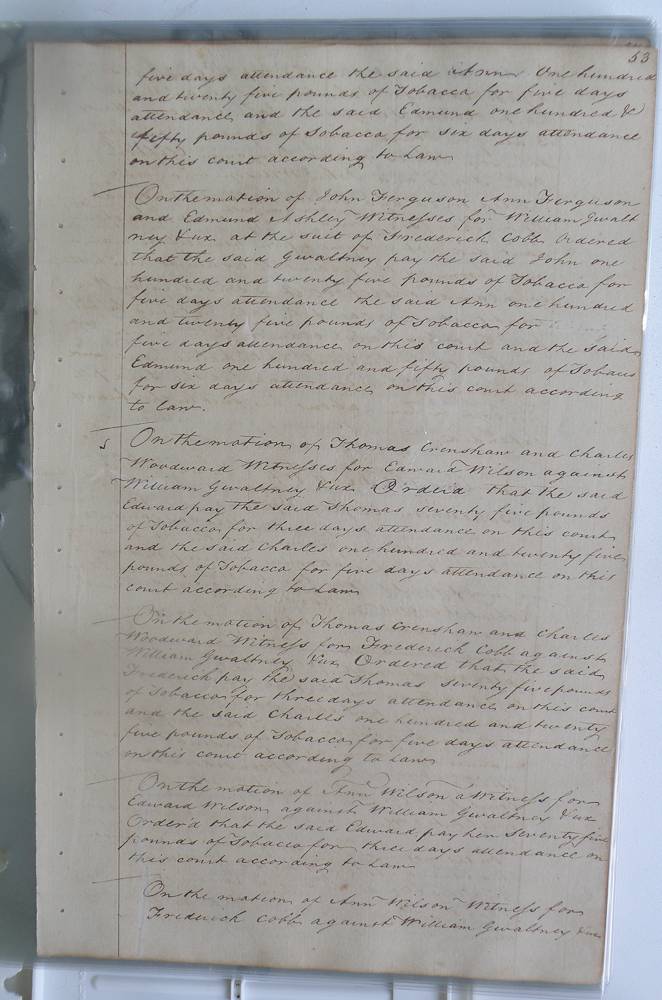 53
five days attendance the said Ann One hundred
and twenty five pounds of Tobacco for five days
attendance and the said Edmund one hundred &
fifty pounds of Tobacco for six days attendance
on this court according to Law
On the motion of John Ferguson Ann Ferguson
and Edmund Ashley Witnesses for William Gwalt
ney & ux at the suit of Frederick Cobb Ordered
that the said Gwaltney pay the said John one
hundred and twenty five pounds of Tobacco for
five days attendance the said Ann one hundred
and twenty five pounds of Tobacco for
five days attendance on this court and the said
Edmund one hundred and fifty pounds of Tobacco
for six days attendance on this court according
to Law.
On the motion of Thomas Crenshaw and Charles
Woodward Witnesses for Edward Wilson against
William Gwaltney & ux Orderd that the said
Edward pay the said Thomas seventy five pounds
of Tobacco for three days attendance on this court
and the said Charles one hundred and twenty five
pounds of Tobacco for five days attendance on this
court according to Law
On the motion of Thomas Crenshaw and Charles
Woodward Witness for Frederick Cobb against
William Gwaltney & ux Ordered that the said
Frederick pay the said Thomas seventy five pounds
of Tobacco for three days attendance on this court
and the said Charles one hundred and twenty
five pounds of Tobacco for five days attendance
on this court according to Law
On the motion of Ann Wilson a Witness for
Edward Wilson against William Gwaltney & ux
Order'd that the said Edward pay her Seventy five
pounds of Tobacco for three days attendance on
this court according to Law
On the motion of Ann Wilson Witness for
Frederick Cobb against William Gwaltney & ux